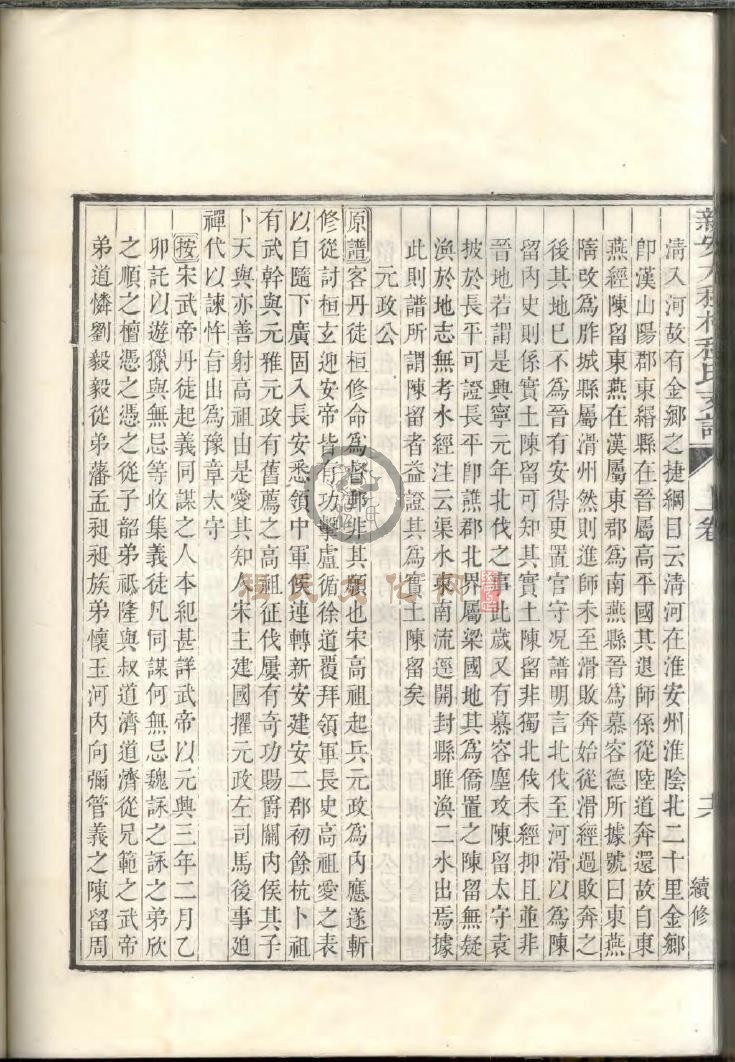 新安大程村程氏支譜
上卷
十六
續修
清入河故有金鄉之捷綱目云清河在淮安州淮陰北二十里金鄉
卽漢山陽郡東緡縣在晉屬高平國其退師係從陸道奔還故自東
燕經陳留東燕在漢屬東郡爲南燕縣晉爲慕容德所據號曰東燕
隋改爲胙城縣屬滑州然則進師未至滑敗奔始從滑經過敗奔之
後其地已不爲晉有安得更置官守况譜明言北伐至河滑以爲陳
留內史則係實土陳留可知其實土陳留非獨北伐未經抑且並非
晉地若謂是興寧元年北伐之事此歲又有慕容塵攻陳留太守袁
披於長平可證長平卽譙郡北界屬梁國地其爲僑置之陳留無疑
渙於地志無考水經注云渠水東南流逕開封縣睢渙二水出焉據
此則譜所謂陳留者益證其爲實土陳留矣
元政公
原譜客丹徒桓修命爲督郵非其願也宋高祖起兵元政爲內應遂斬
修從討桓玄迎安帝皆有功擊盧循徐道覆拜領軍長史高祖愛之表
以自隨下廣固入長安悉領中軍侯連轉新安建安二郡初餘杭卜祖
有武幹與元雅元政有舊薦之高祖征伐屢有奇功賜爵關內侯其子
卜天與亦善射高祖由是愛其知人宋主建國擢元政左司馬後事廹
禪代以諫忤旨出爲豫章太守
按宋武帝丹徒起義同謀之人本紀甚詳武帝以元興三年二月乙
卯託以遊獵與無忌等收集義徒凡同謀何無忌魏詠之詠之弟欣
之順之檀憑之憑之從子韶弟祗隆與叔道濟道濟從兄範之武帝
弟道憐劉毅毅從弟藩孟昶昶族弟懷玉河內向彌管義之陳留周